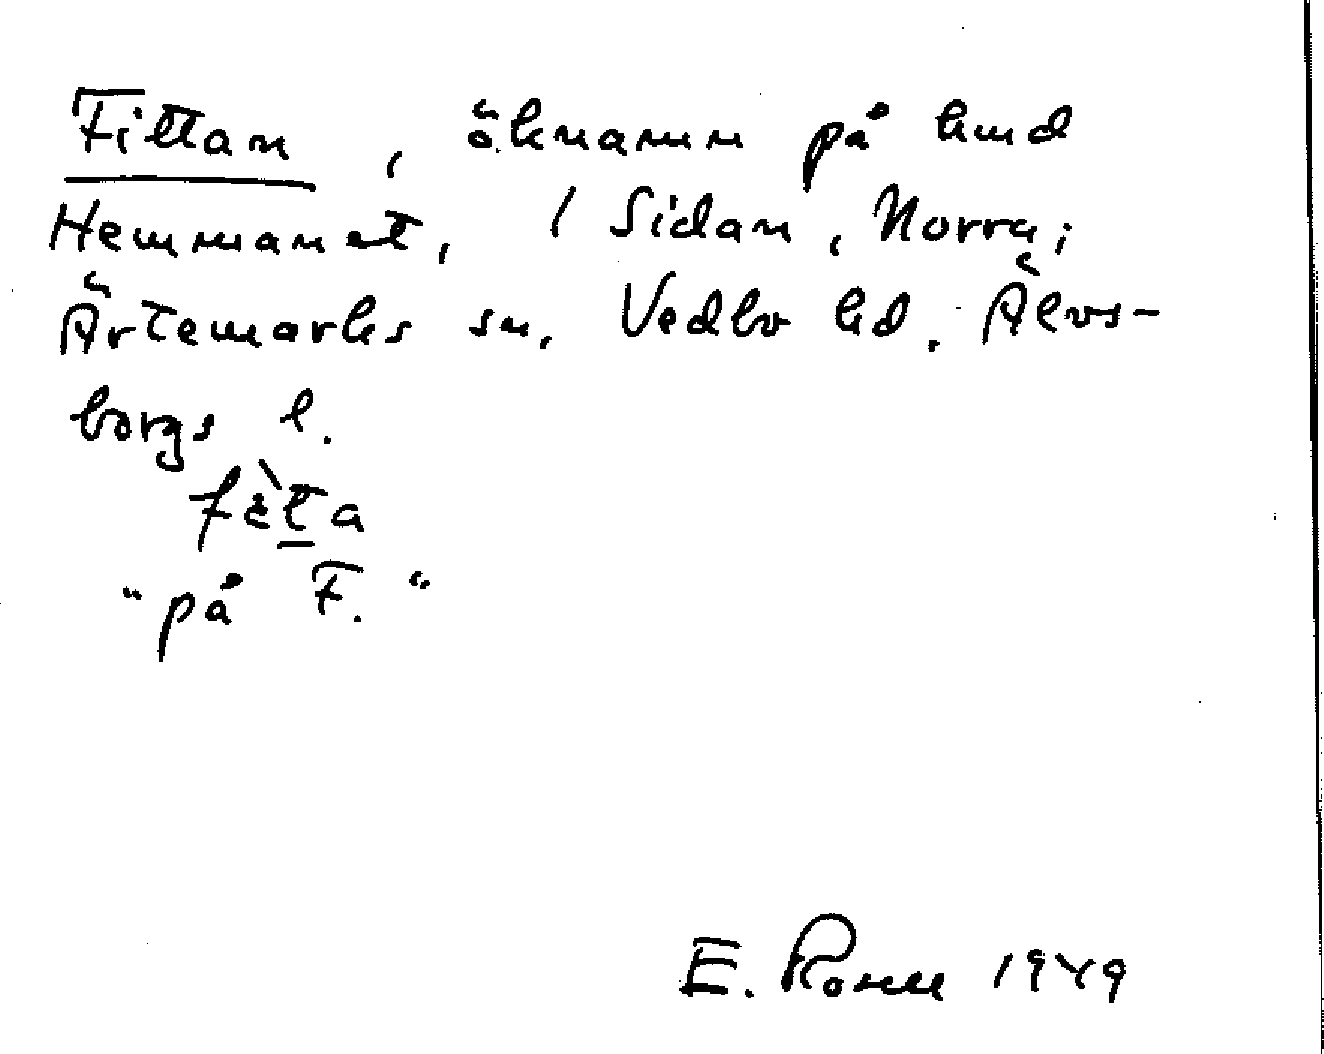 Fittan, öknamn på hmd
Hemmanet, 1 Sidan, Norra;
Ärtemarks sn, Vedbo hd. Älvs-
borgs l.
fèta
"på F."
E. 1949